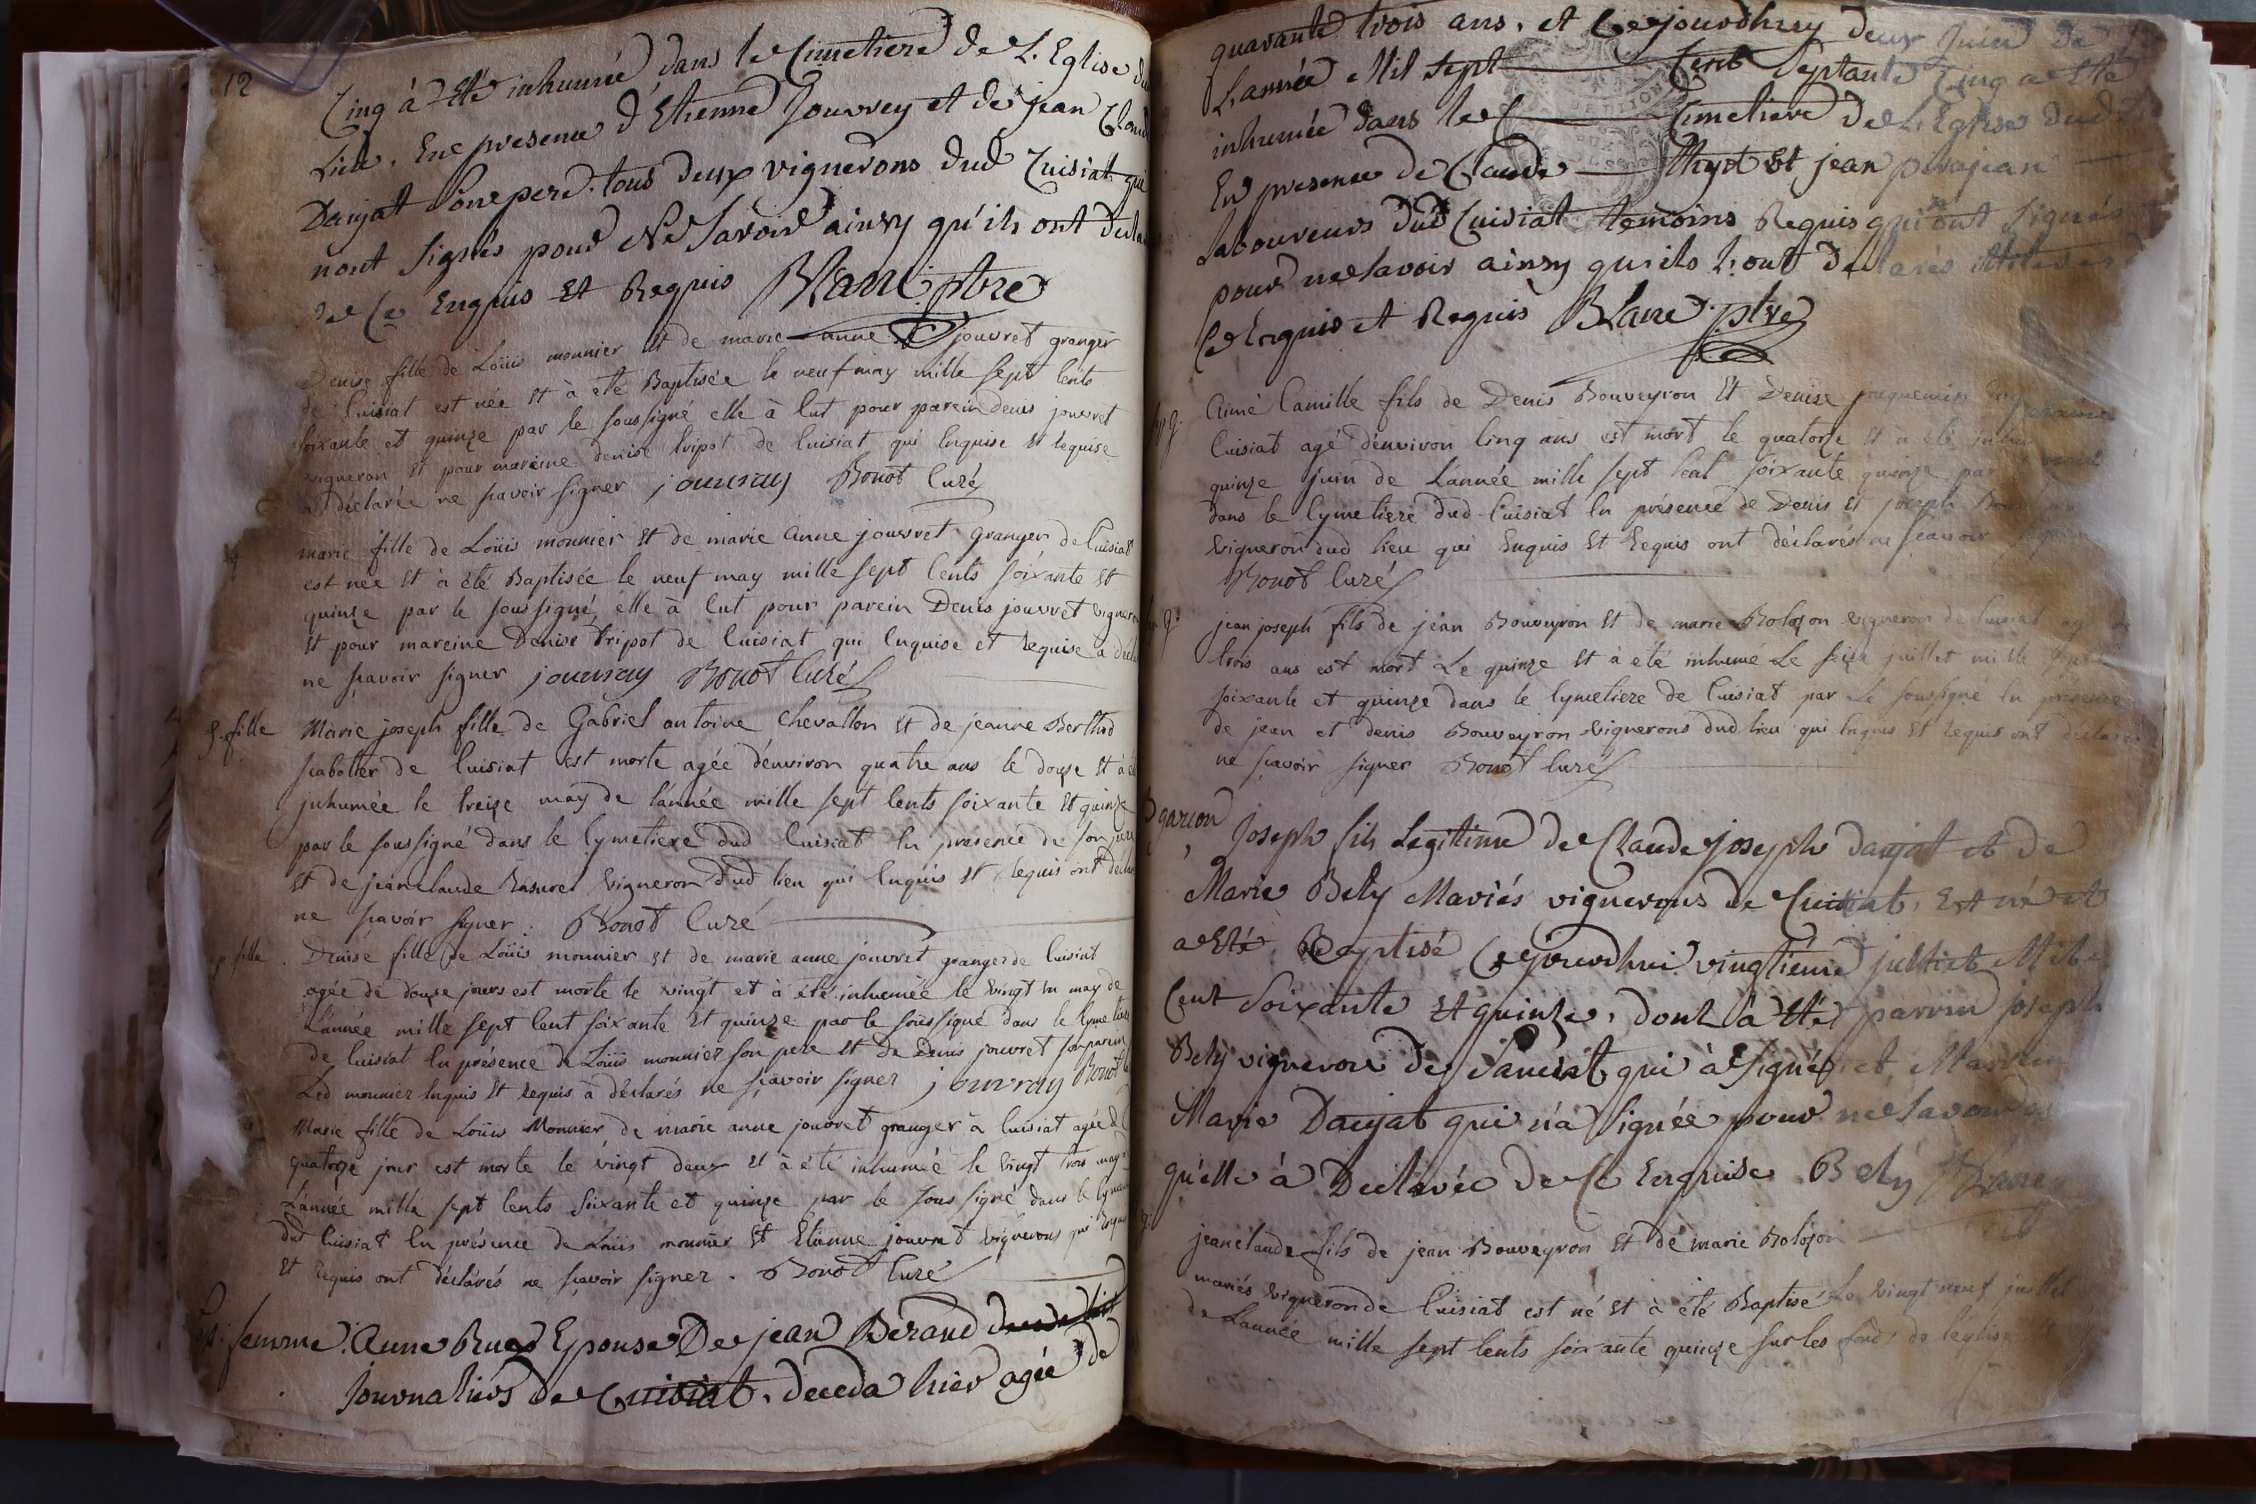 12
Cinq à Eté inhumée dans le Cimetiere de L'Eglise du
Lieu. En presence d'Etienne Jouvrey et de jean Claude
Daujat tous deux vignerons dud Cuisiat qui
nont signés pour Ne Savoir ainsy qu'ils ont
de Ce Enquis Et Requis Blanc ptre
Denise fille de Loüis monnier et de marie anne jouvret granger
de Cuisiat est née et à eté Baptisée le neuf may mille sept cents
soixante et quinze par le soussigné elle à Eut pour parein Denis jouvret
vigneron et pour mareine denise tripot de Cuisiat qui Enquise et requise
à déclarée ne sçavoir signer jouvray Bonot Curé
marie fille de Loüis monnier et de marie anne jouvret granger de Cuisiat
est née et à eté Baptisée le neuf may mille sept Cents soixante et
quinze par le soussigné, elle à Eut pour parein Denis jouvret vigneron
et pour mareine Denise tripot de Cuisiat qui Enquise et requise a
ne sçavoir signer jouvray Bonot Curé
S. fille
Marie joseph fille de Gabriel antoine Chevallon et de jeanne Berthod
sabotier de Cuisiat est morte agée d'environ quatre ans le douze et à
inhumée le treize may de l'année mille sept Cents soixante et quinze
par le soussigné dans le Cymetiere dud Cuisiat En presence de son
et de jean claude vigneron dud lieu qui Enquis et requis ont
ne sçavoir signer. Bonot Curé
fille
Denise fille de Loüis monnier et de marie anne jouvret granger de Cuisiat
agée de douze jours est morte le vingt et à été inhumée le vingt un may de
L'année mille sept Cent soixante et quinze par le soussigné dans le Cymetiere
de Cuisiat En présence de Loüis monnier son pere et de Denis jouvret son parein
Led monnier Enquis et requis à déclarés ne sçavoir signer jouvray Bonot
Marie fille de Loüis Monnier de marie anne jouvret granger à Cuisiat agée de
quatorze jour est morte le vingt deux et à été inhumée le vingt trois may
L'année mille sept Cents soixante et quinze par le sous signé dans le
dud Cuisiat En présence de Loüis monnier et Etienne jouvret vignerons qui Enquis
et requis ont déclarés ne sçavoir signer. Bonot Curé
femme. Anne Epouse De jean Beraud
Journaliers de Cuisiat. deceda hier agée de
quarante trois ans, et Cejourdhuy deux Juin de
L'année Mil sept Cent Septante Cinq a Eté
inhumée dans le Cimetiere de L'Eglise dud
En presence de Claude Et jean pitrajean
Laboureurs dud Cuisiat temoins Requis qui n'ont signés
pour ne savoir ainsy qu'ils L'ont declarés
Ce Enquis et Requis Blanc ptre
Aimé Camille fils de Denis Bouveyron et Denise
Cuisiat agé d'environ Cinq ans est mort le quatorze et a été
quinze juin de L'année mille sept Cent soixante quinze par
dans le Cymetiere dud Cuisiat En présence de Denis et joseph
vigneron dud lieu qui Enquis et requis ont déclarés ne sçavoir signer
Bonot Curé
jean joseph fils de jean Bouveyron et de marie Bolozon vigneron de Cuisiat
trois ans est mort Le quinze et à eté inhumé Le seize juillet mille
soixante et quinze dans le Cymetiere de Cuisiat par Le soussigné En présence
de jean et denis Bouveyron vignerons dud lieu qui Enquis et requis ont déclarés
ne sçavoir signer Bonot Curé
garçon
Joseph fils Legitime de Claude joseph daujat et de
Marie Bely Mariés vignerons de Cuisiat, Est né et
a Eté Baptisé Cejourdhui vingtième juillet Mil
Cent Soixante Et quinze, dont à Eté parrin joseph
Bely vigneron de qui à Signé et
Marie Daujat qui n'à Signée pour ne savoir
qu'elle à Déclarée de Ce Enquise. Bely Blanc
jean claude fils de jean Bouveyron et de marie Bolozon
mariés vigneron de Cuisiat est né et à été Baptisé Le vingt neuf juillet
de L'année mille sept Cents soixante quinze sur les fond de l'église